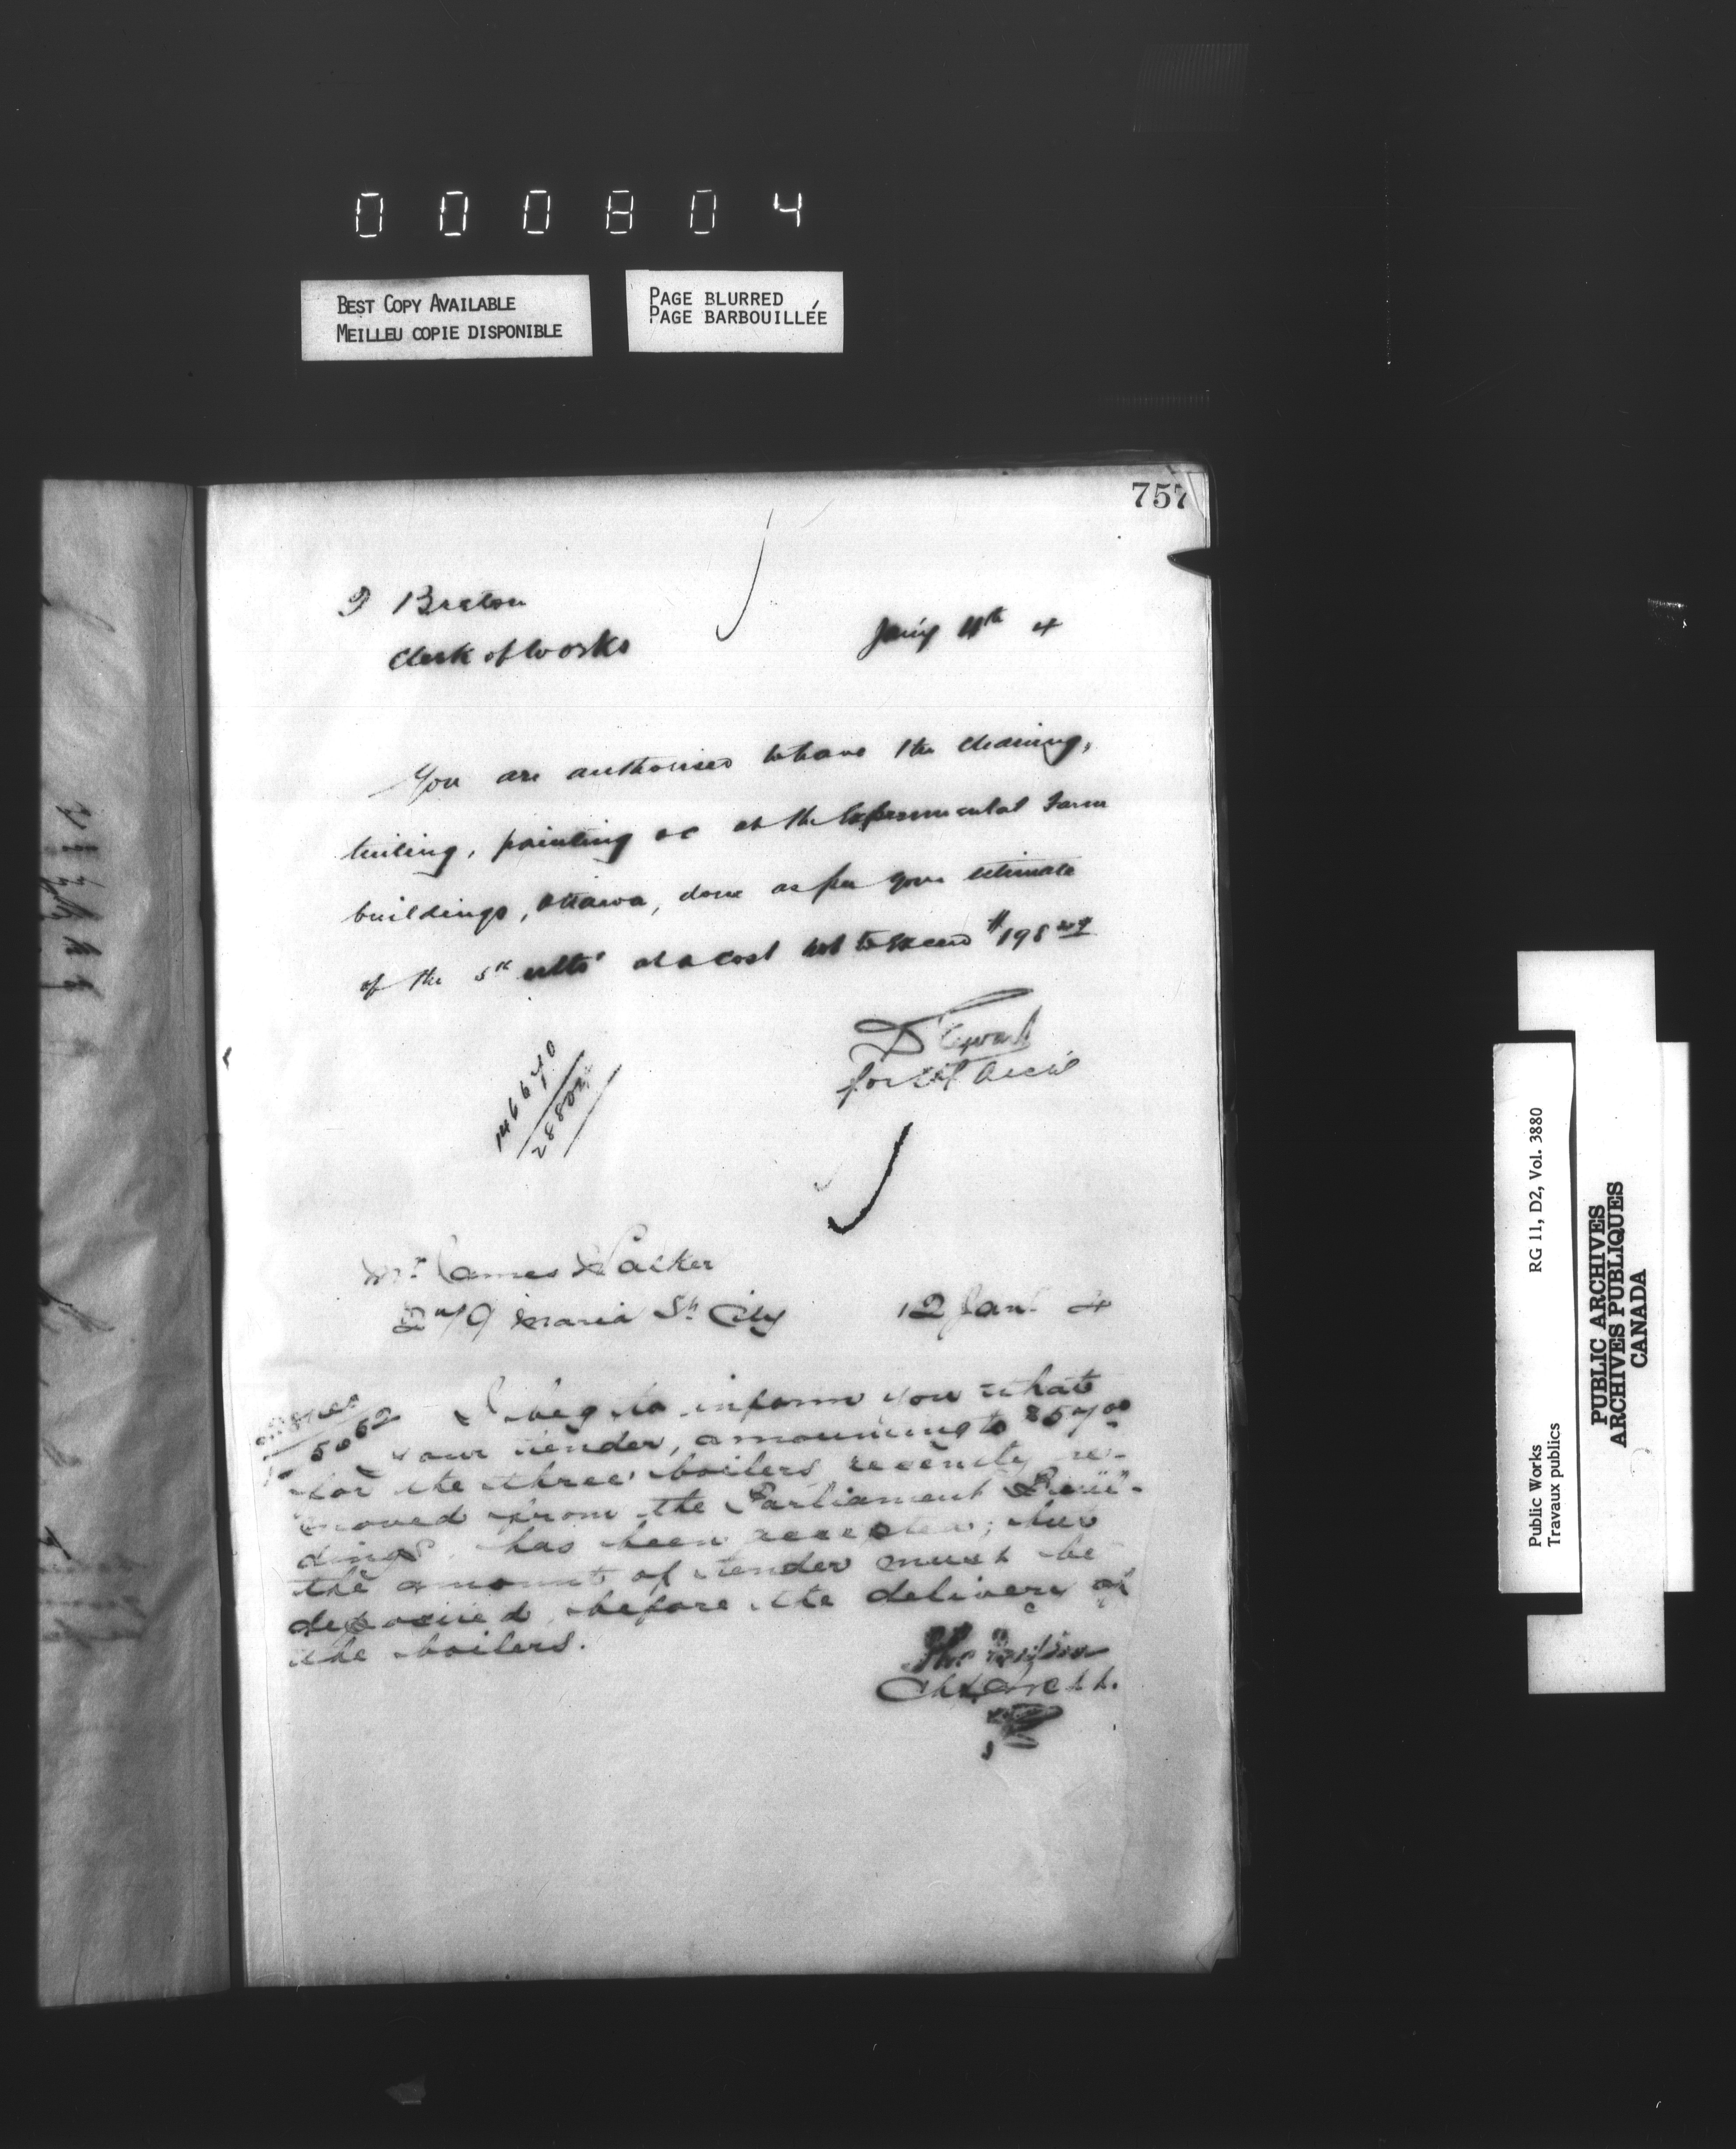 000804
BEST COPY AVAILABLE
MEILLEU COPIE DISPONIBLE
PAGE BLURRED
PAGE BARBOUILLÉE
757
Breton
Clerk of Works
Jany 11th 4
You are authorised to have the cleaning,
tinting, painting &c at the Experimental Farm
buildings, Ottawa, done as per your estimate
of the 5th ulto at a cost not to exceed $198
for Chf Arch
146640
28802
Mr James Walker
Maria St. City 12 Jan. 4
I beg to inform you that
your tender, amounting to
for the three boilers recently re-
moved from the Parliament Buil-
dings, has been accepted; but
the amount of tender must be
deposited before the delivery of
the boilers.
Ch Archt.
Public Works
Travaux publics
RG 11, D2, Vol. 3880
PUBLIC ARCHIVES
ARCHIVES PUBLIQUES
CANADA